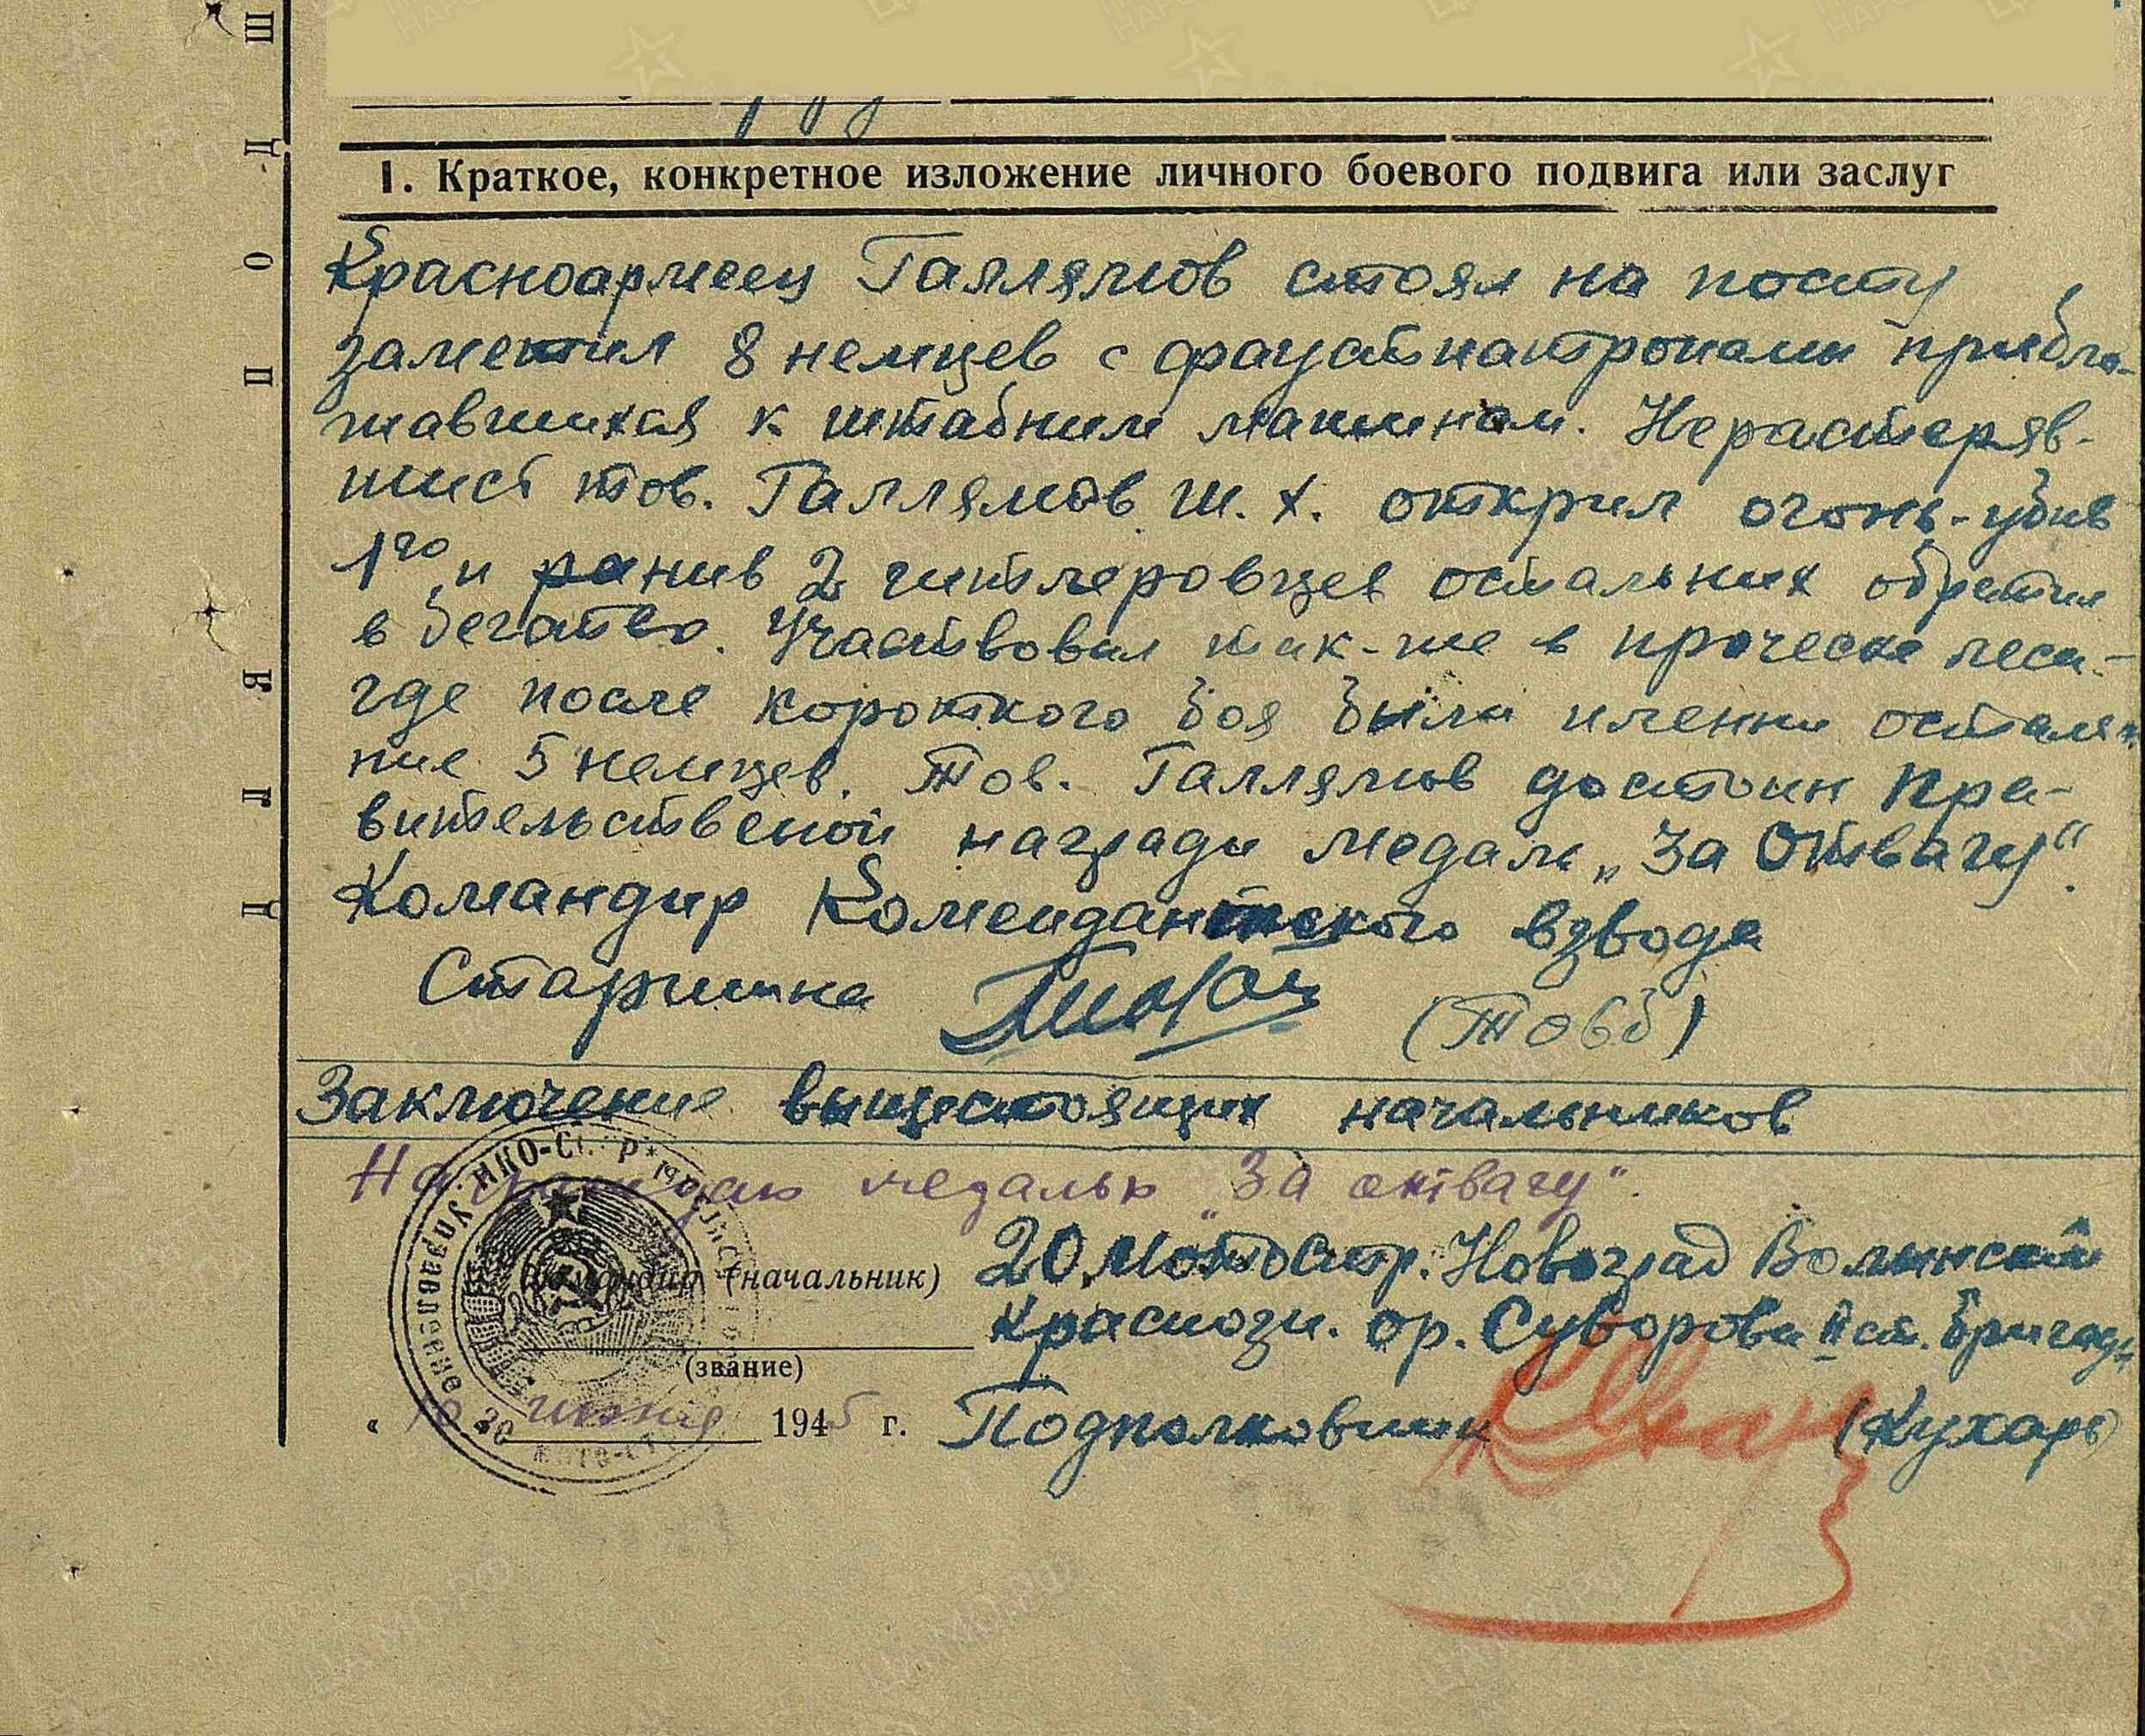 I. Краткое, конкретное изложение личного боевого подвига или заслуг
Красноармеец Галлямов стоял на посту
заметил 8 немцев с фаустпатронами прибли-
жавшихся к штабним машинам. Нерастеряв-
шись тов. Галлямов Ш. Х. открил огонь-убив
1го и ранив 2 гитлеровцев остальних обратил
в бегство. Участвовал так-же в прочески леса-
где после короткого боя были пленени осталь-
ние 5 немцев. Тов. Галлямов достоин Пра-
вительственой награди медаль „За Отвагу“.
Командир Комендантского взвода
Старшина (Товб)
Заключение вышестоящих начальников
Награжден медалью „За отвагу“.
Командир (начальник) 20 Мотостр. Новоград Волинской
Краснозн. ор. Суворова II ст. бригади
(звание)
« 10 » июня 1945 г. Подполковник (Кухарь)